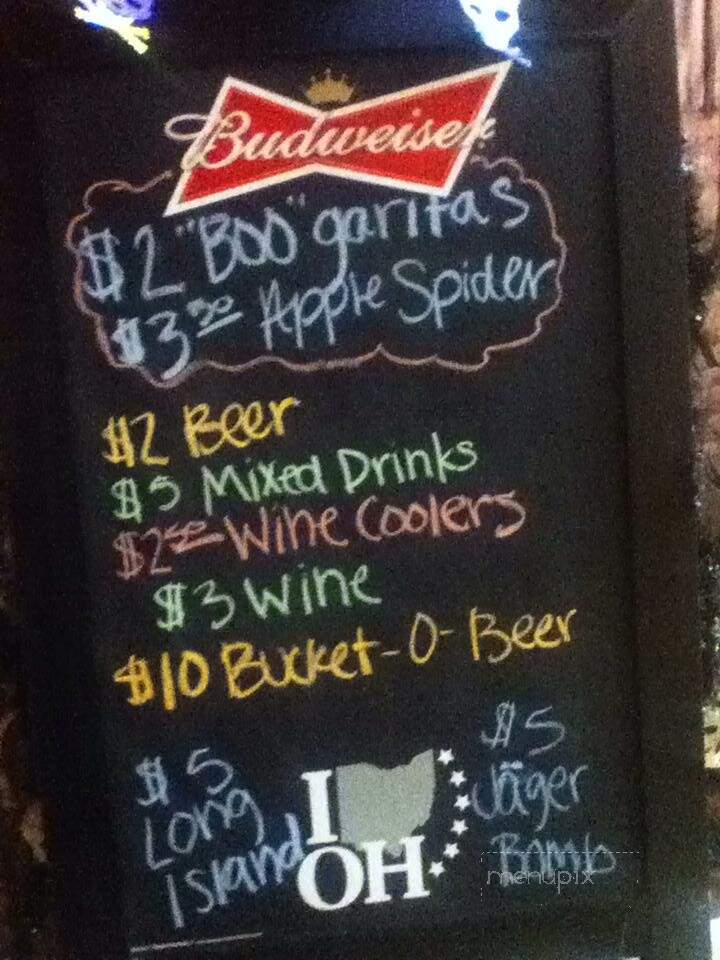 Budweiser
$2 "Boo" garitas
$3.50 Apple Spider
$2 Beer
$5 Mixed Drinks
$2.50 Wine Coolers
$3 Wine
$10 Bucket-O-Beer
$5
Long
Island
I
OH
$5
Jäger
Bomb
menupix